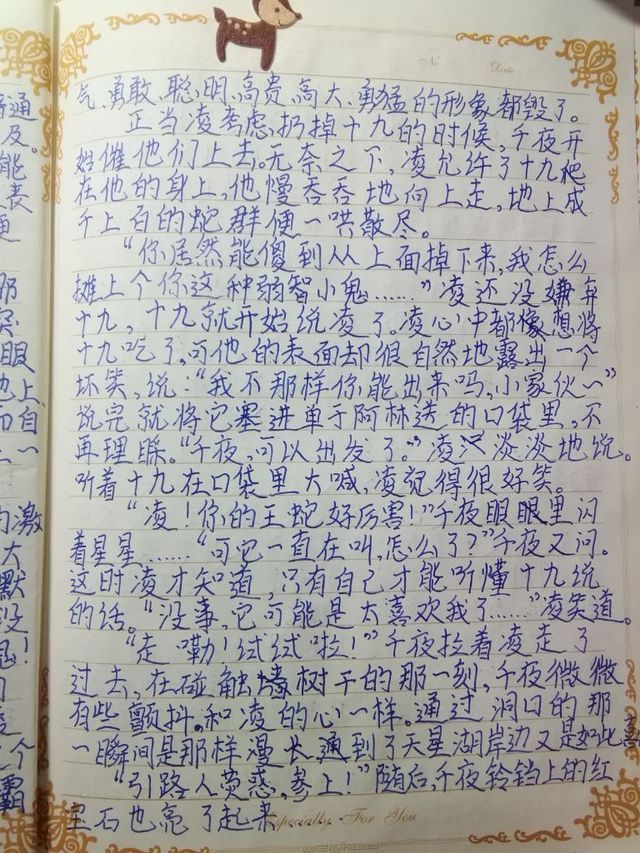 No
Date
气、勇敢、聪明、高贵、高大、勇猛的形象都毁了。
正当凌考虑扔掉十九的时候,千夜开
始催他们上去。无奈之下,凌允许了十九爬
在他的身上,他慢吞吞地向上走,地上成
千上百的蛇群便一哄散尽。
“你居然能傻到从上面掉下来,我怎么
摊上个你这种弱智小鬼……”凌还没嫌弃
十九,十九就开始说凌了。凌心中都像想将
十九吃了,可他的表面却很自然地露出一个
坏笑,说:“我不那样你能出来吗,小家伙~”
说完就将它塞进单于阿林送的口袋里,不
再理睬。“千夜,可以出发了。”凌只淡淡地说。
听着十九在口袋里大喊,凌觉得很好笑。
“凌!你的王蛇好厉害!”千夜眼眼里闪
着星星……“可它一直在叫,怎么了?”千夜又问。
这时凌才知道,只有自己才能听懂十九说
的话。“没事,它可能是太喜欢我了……”凌笑道。
“走嘞!试试啦!”千夜拉着凌走了
过去,在碰触树干的那一刻,千夜微微
有些颤抖。和凌的心一样。通过洞口的那
一瞬间是那样漫长,通到了天星湖岸边又是如此
“引路人荧惑,参上!”随后,千夜铃铛上的红
宝石也亮了起来
Especially For You
通
及。
能
丧
便
那
眼
也上
而自
一
激
大
默
没
鬼!
个
霸